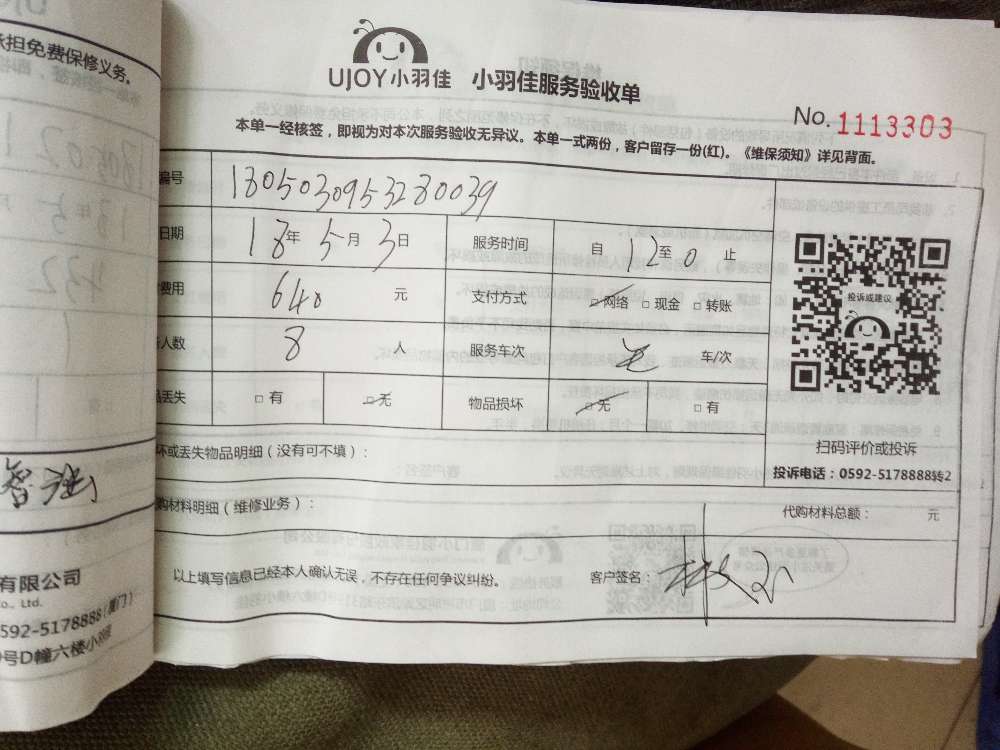 承担免费保修义务。
UJOY小羽佳 小羽佳服务验收单
No. 1113303
本单一经核签，即视为对本次服务验收无异议。本单一式两份，客户留存一份(红)。《维保须知》详见背面。
编号 1805030953280039
日期 18年5月3日 服务时间 自 12 至 0 止
费用 640 元 支付方式 □网络 □现金 □转账
人数 8 人 服务车次 车/次
丢失 □有 □无 物品损坏 □无 □有
投诉或建议
扫码评价或投诉
投诉电话：0592-5178888转2
坏或丢失物品明细（没有可不填）：
购材料明细（维修业务）：
代购材料总额： 元
以上填写信息已经本人确认无误，不存在任何争议纠纷。 客户签名：
有限公司
Co., Ltd.
592-5178888(厦门)
号D幢六楼小羽